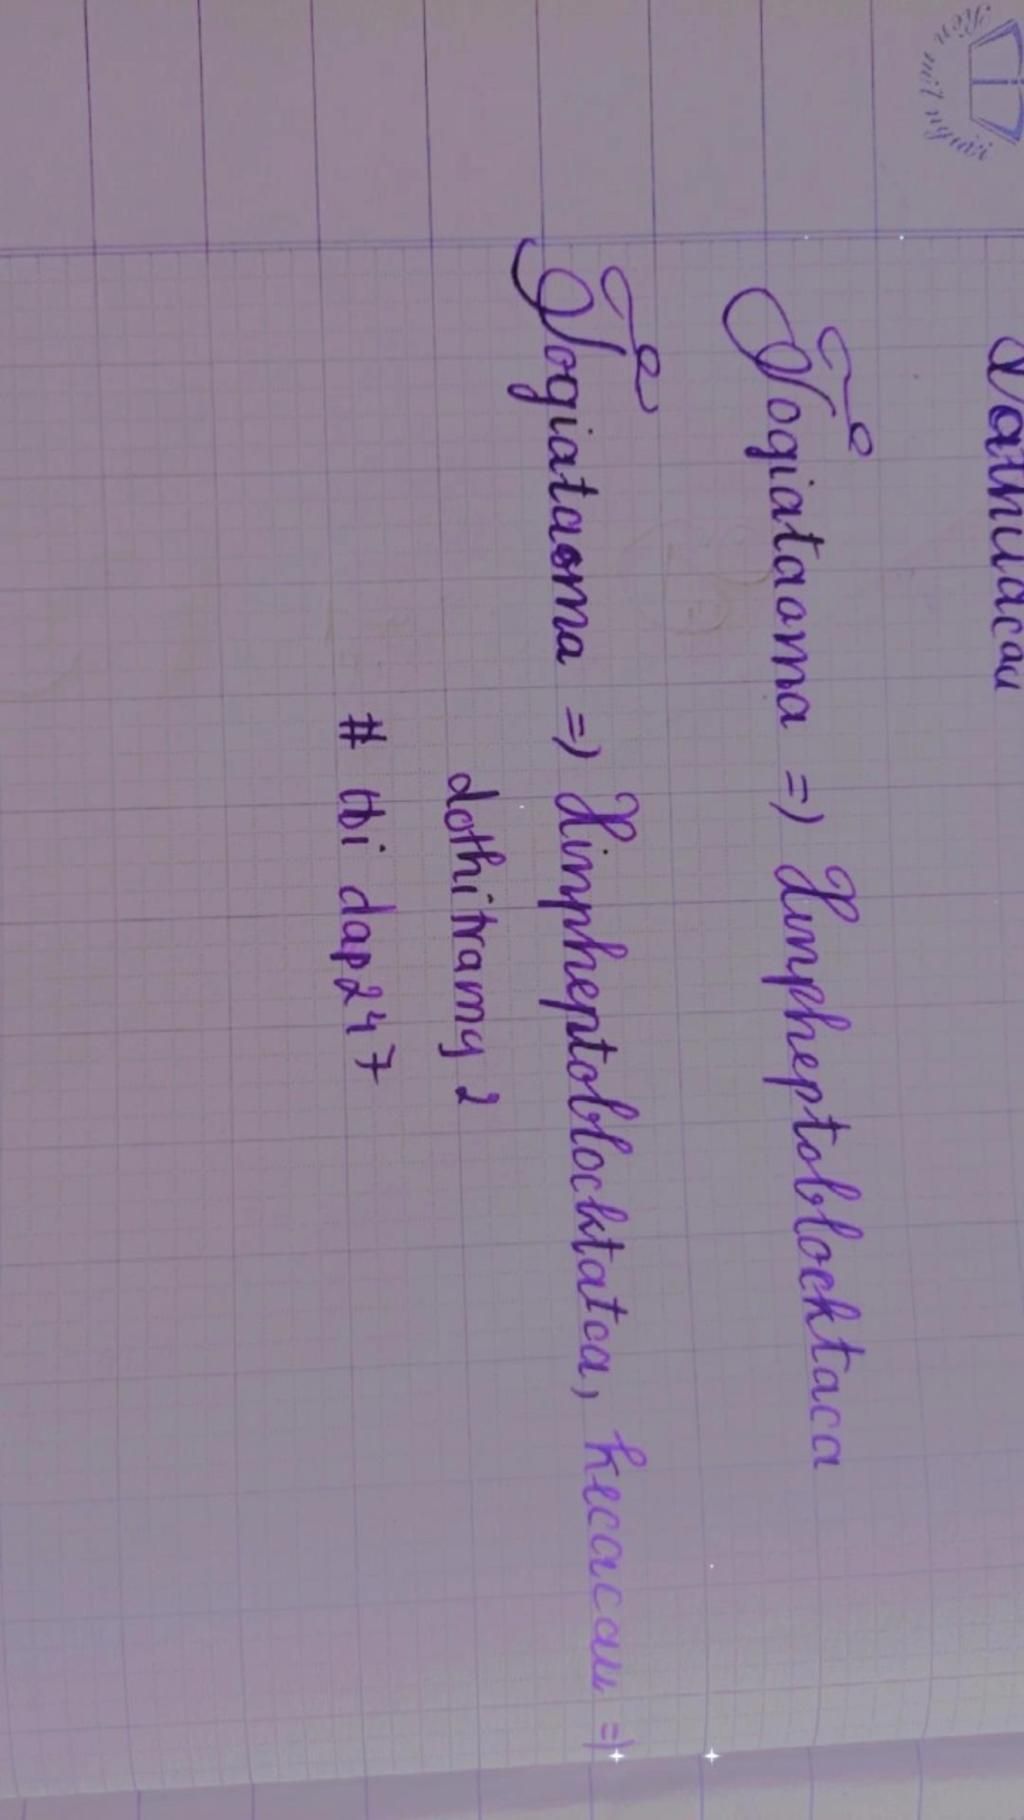 Rèn một người
Vathidacau
Togiataoma => Linpheptoblocktaca
Togiataoma => Linpheptoblocktatca, kecacau =)
dothitramg 2
# tbi dap247